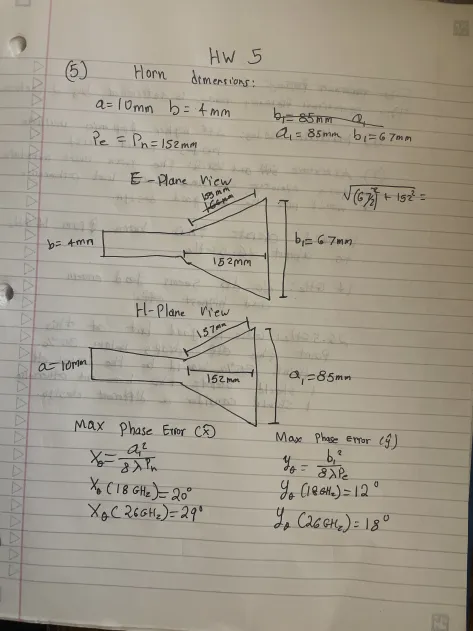 HW 5
(5) Horn dimensions:
a=10mm b=4mm
b₁=85mm a₁
a₁=85mm b₁=67mm
Pe = Pn=152mm
E-Plane View
√(67/2)²+152² =
b=4mm
152mm
b₁=67mm
H-Plane View
157mm
a=10mm
152mm
a₁=85mm
Max Phase Error (x̂)
Xθ= a₁²/8λPn
Xθ(18GHz)=20°
Xθ(26GHz)=29°
Max Phase Error (ŷ)
yθ= b₁²/8λPe
yθ(18GHz)=12°
yθ(26GHz)=18°